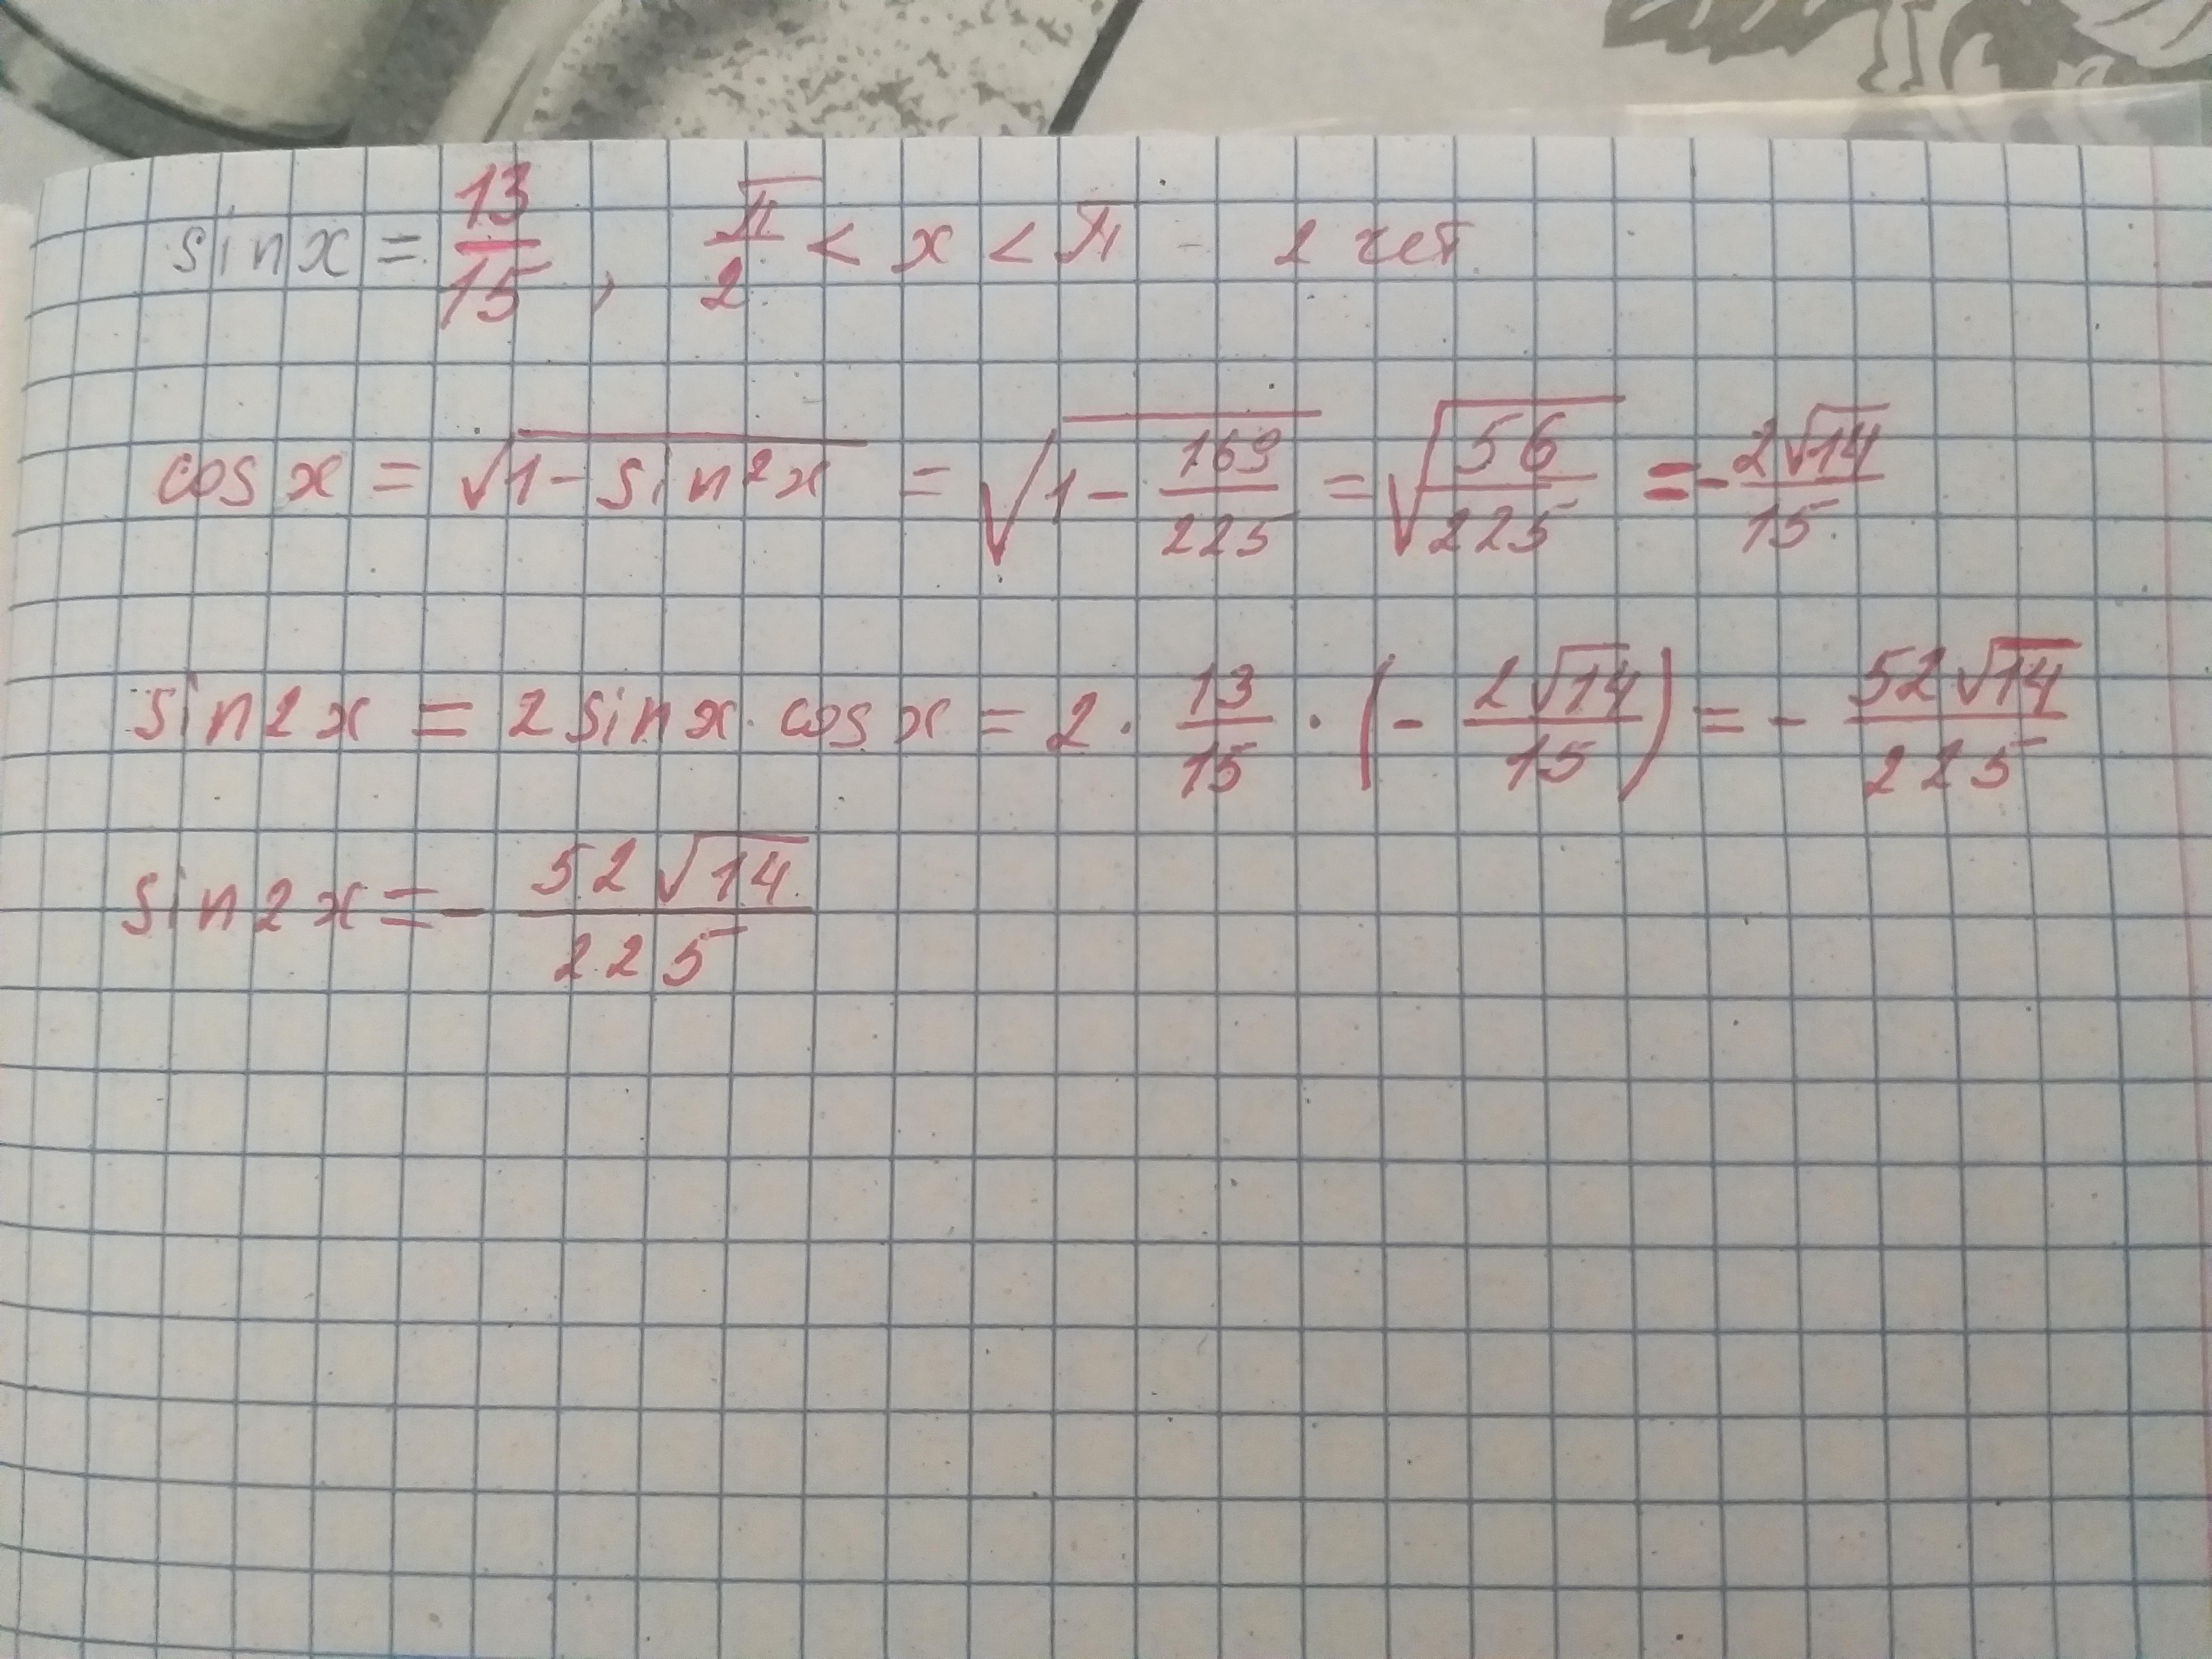 sin x = 13/15, π/2 < x < π - 2 чет.
cos x = √(1 - sin²x) = √(1 - 169/225) = √(56/225) = - 2√14/15
sin 2x = 2 sin x · cos x = 2 · 13/15 · (- 2√14/15) = - 52√14/225
sin 2x = - 52√14/225